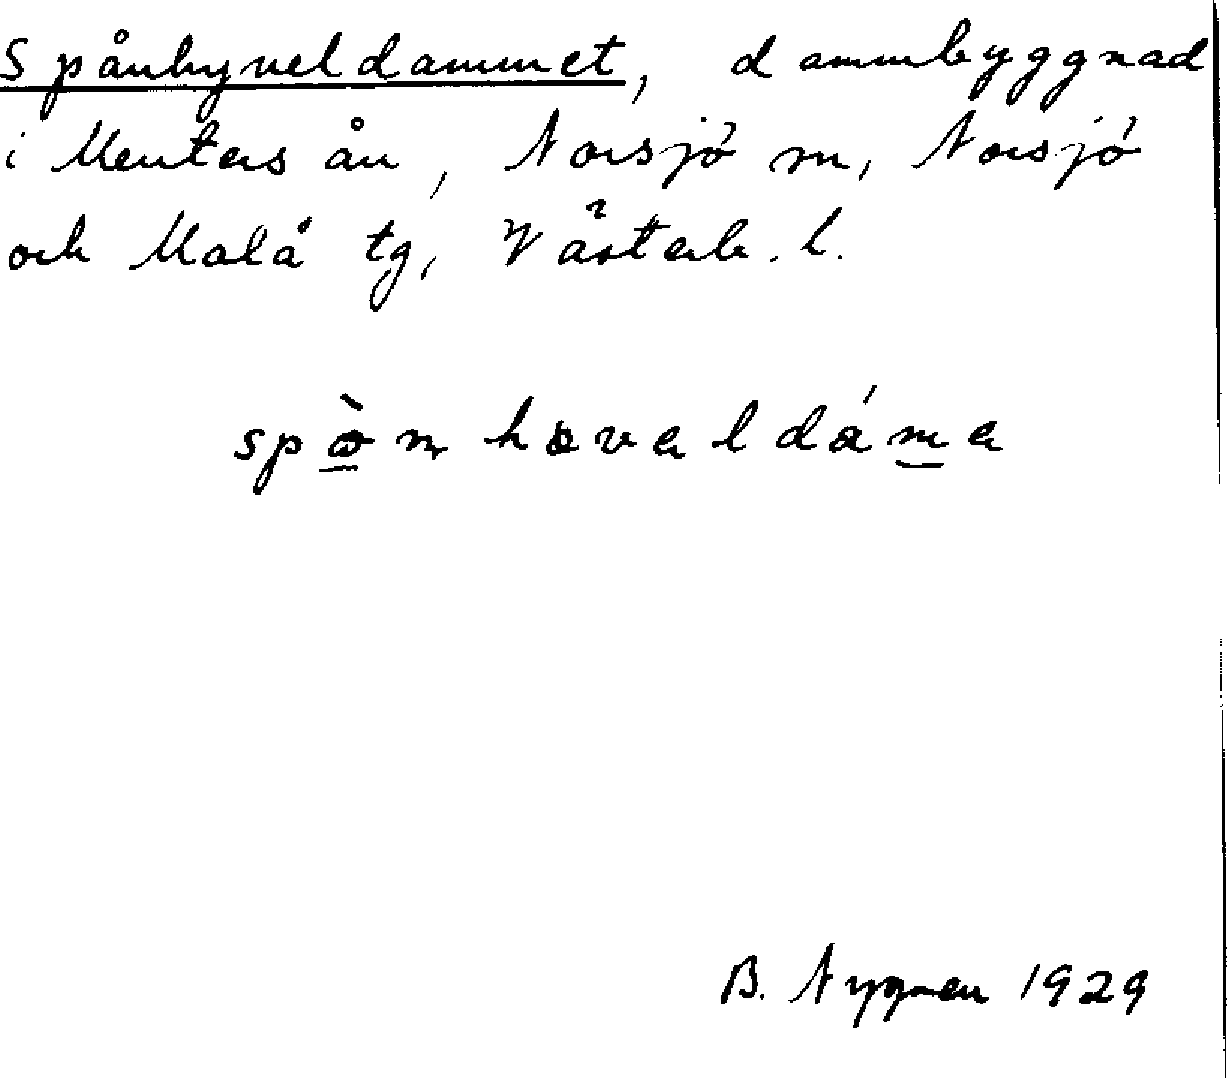 Spånhyveldammet, dammbyggnad
i Mentas ån, Norsjö sn, Norsjö
och Malå tg, Västerb. l.
spɷ̀n hɵvəldámə
B. Nygren 1929